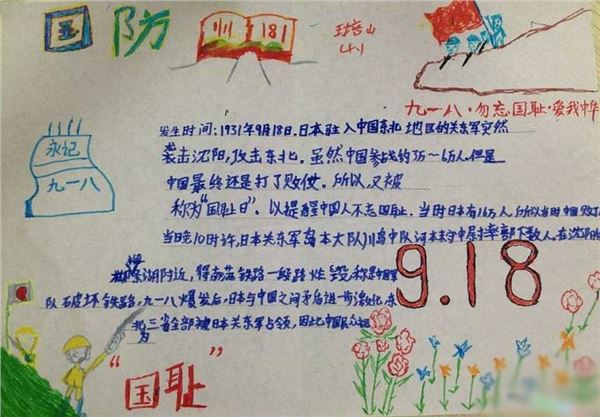 国防
九一八
培山
小
九一八·勿忘国耻·爱我中华
永记
九一八
发生时间:1931年9月18日,日本驻入中国东北地区的关东军突然
袭击沈阳,攻击东北。虽然中国参战约万~6万人.但是
中国最终还是打了败仗。所以,又被
称为"国耻日"。以提醒中国人不忘国耻。当时日本有16万人,所以当时中国败了
当晚10时许,日本关东军岛本大队川岛中队河本末守中尉率部下数人,在沈阳
湖附近,将南满铁路一段路炸毁,称是中国军
队破坏铁路,九一八爆发后,日本与中国之间矛盾进一步激化,东
北三省全部被日本关东军占领,因此中国民众
为
9.18
"国耻"